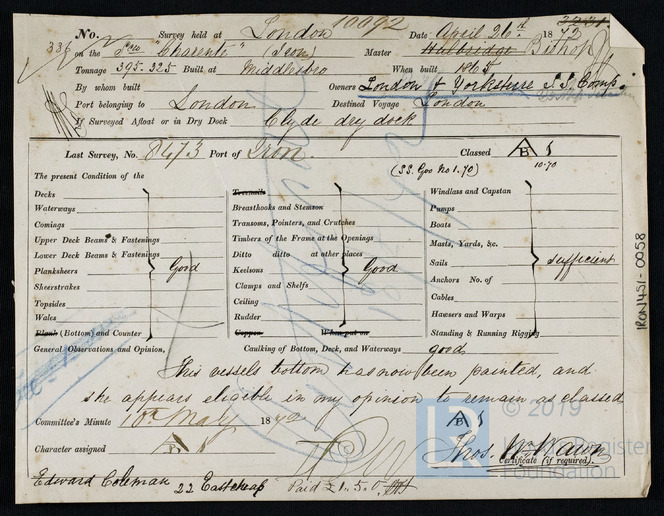 No. Survey held at London 10092 Date April 26th 1872
336 on the Screw "Charente" (Iron) Master Bishop
Tonnage 395.325 Built at Middlesbro When built 1865
By whom built Owners London & Yorkshire S.S. Comp.
Port belonging to London Destined Voyage London
If Surveyed Afloat or in Dry Dock Clyde dry dock
Last Survey, No. 8473 Port of Iron. Classed A B 1
(SS. Goo No 1.70) 10.70
The present Condition of the
Decks
Waterways
Comings
Upper Deck Beams & Fastenings
Lower Deck Beams & Fastenings
Planksheers
Sheerstrakes
Topsides
Wales
Plank (Bottom) and Counter
Good
Treenails
Breasthooks and Stemson
Transoms, Pointers, and Crutches
Timbers of the Frame at the Openings
Ditto ditto at other places
Keelsons
Clamps and Shelfs
Ceiling
Rudder
Copper When put on
Good
Windlass and Capstan
Pumps
Boats
Masts, Yards, &c.
Sails
Anchors No. of
Cables
Hawsers and Warps
Standing & Running Rigging
sufficient
General Observations and Opinion, Caulking of Bottom, Deck, and Waterways good
This vessels bottom has now been painted, and
she appears eligible in my opinion to remain as classed
Committee's Minute 10th May 1872 A B 1
Character assigned A B 1 Thos. Wm Wawn
Certificate (if required)
Edward Coleman 22 Eastcheap Paid £1.5.0
IRON451-0058
LR © 2019
Register
Foundation